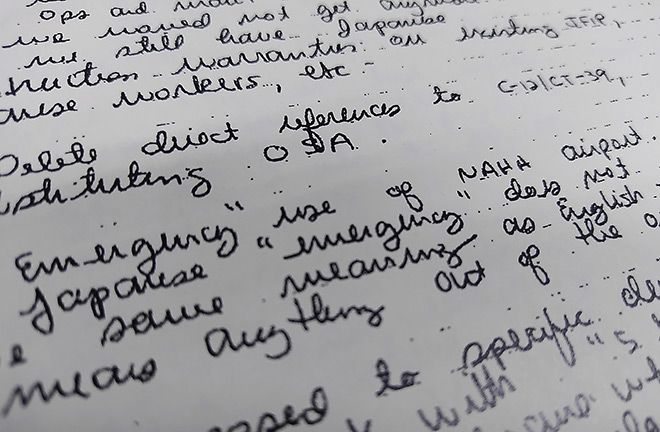 ops and
we would not get
we still have Japanese
warranties on existing JFIP,
workers, etc.
Delete direct references to C-12/CT-39,
OSA.
"Emergency" use of NAHA airport.
Japanese "emergency" does not
same meaning as English.
means anything out of the o
to specific de
with "5